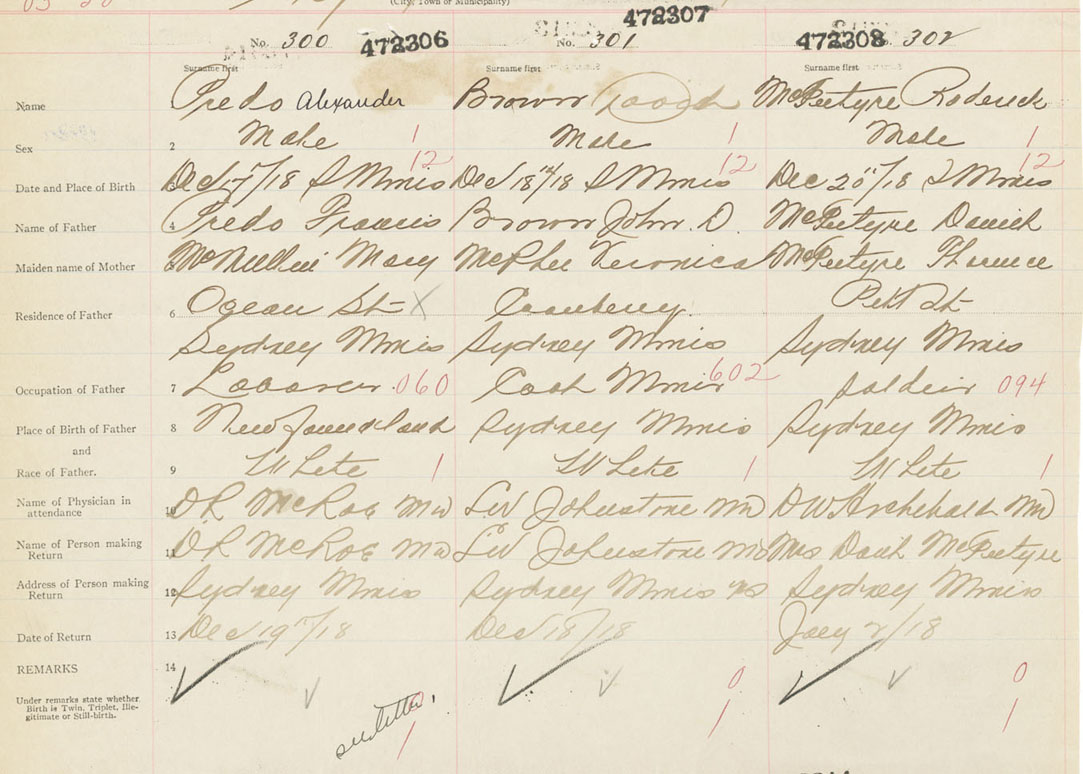 (City, Town or Municipality)
No. 300 472306 No. 301 472307 472308 302
Surname first Surname first Surname first
Name Predo Alexander Brown McIntyre Roderick
Sex 2 Male 1 Male 1 Male 1
12 12 12
Date and Place of Birth Dec 17/18 S Mines Dec 18th/18 S Mines Dec 20th/18 S Mines
Name of Father 4 Predo Francis Brown John. D. McIntyre Daniel
Maiden name of Mother McMullin Mary McPhee Veronica McIntyre Florence
Residence of Father 6 Ocean St X Cranberry Pitt St
Sydney Mines Sydney Mines Sydney Mines
Occupation of Father 7 Laborer 060 Coal Miner 602 Soldier 094
Place of Birth of Father 8 Newfoundland Sydney Mines Sydney Mines
and
Race of Father. 9 White 1 White 1 White 1
Name of Physician in attendance 10 DR McRae MD LW Johnstone MD DW Archibald MD
Name of Person making Return 11 DR McRae MD LW Johnstone MD Mrs Danl McIntyre
Address of Person making Return 12 Sydney Mines Sydney Mines NS Sydney Mines
Date of Return 13 Dec 19th/18 Dec 18/18 Jany 2/18
REMARKS 14
0 0
Under remarks state whether Birth is Twin, Triplet, Illegitimate or Still-birth. see letter 1 1 1